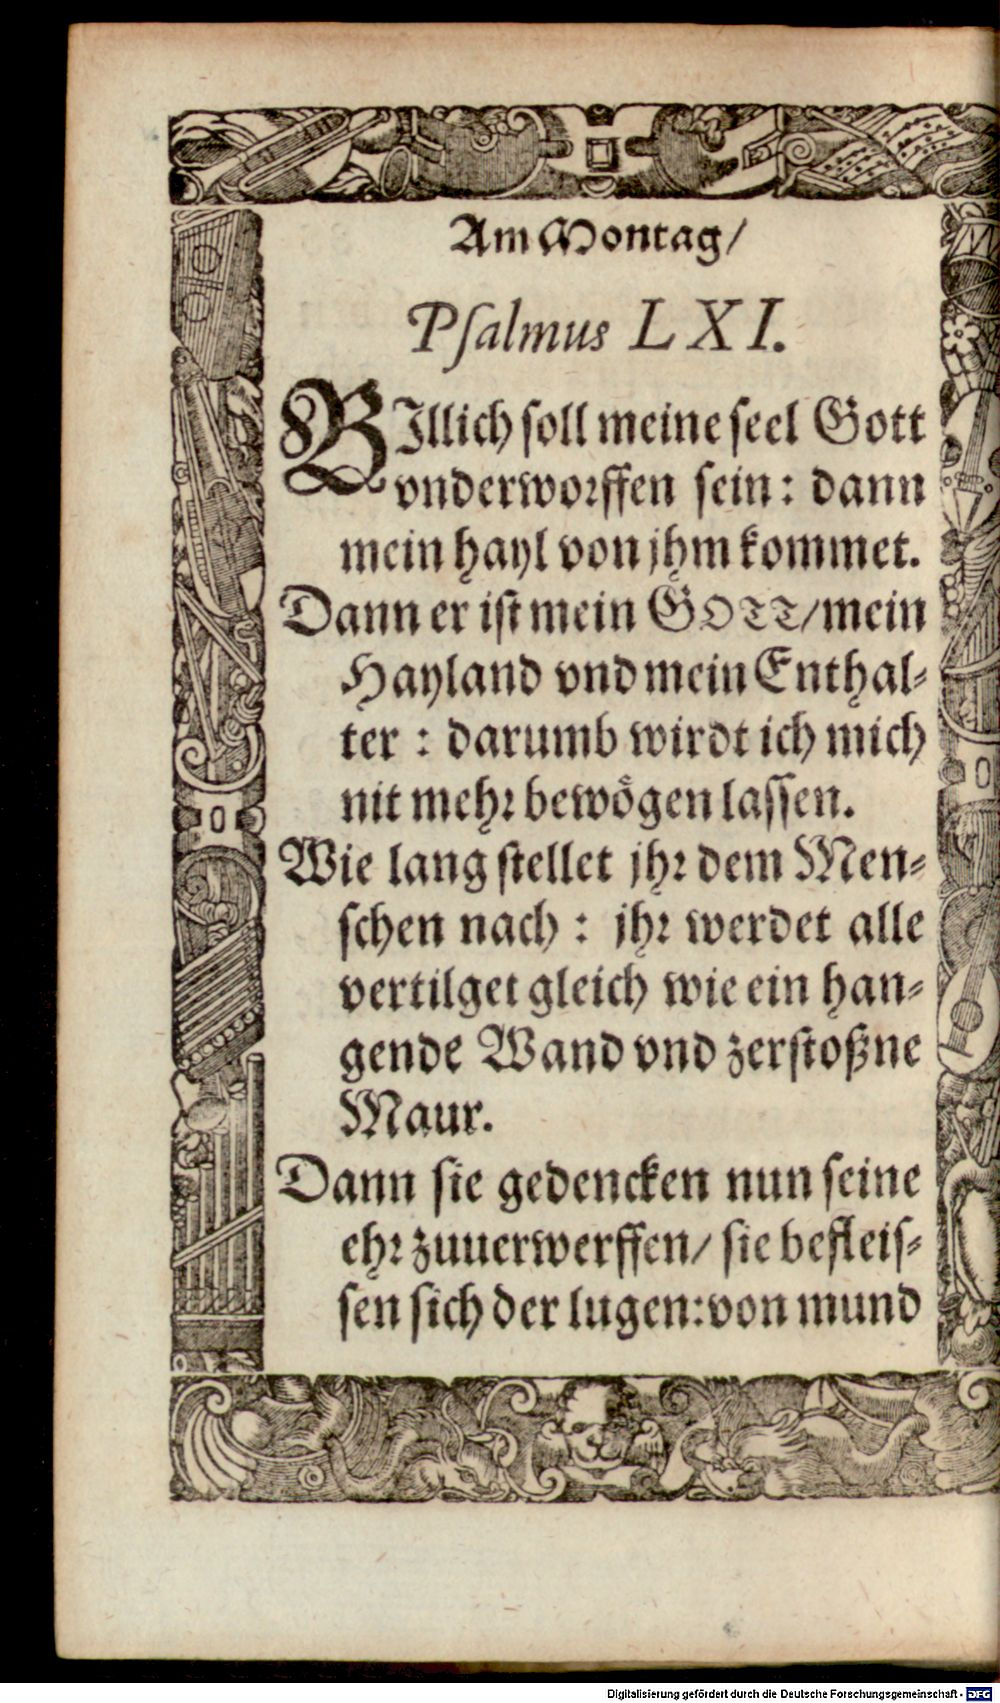 Am Montag/
Psalmus LXI.
BIllich soll meine seel Gott
vnderworffen sein: dann
mein hayl von jhm kommet.
Dann er ist mein GOTT/mein
Hayland vnd mein Enthal-
ter : darumb wirdt ich mich
nit mehr bewögen lassen.
Wie lang stellet jhr dem Men-
schen nach : jhr werdet alle
vertilget gleich wie ein han-
gende Wand vnd zerstoßne
Maur.
Dann sie gedencken nun seine
ehr zuuerwerffen/ sie befleis-
sen sich der lugen:von mund
Digitalisierung gefördert durch die Deutsche Forschungsgemeinschaft - DFG